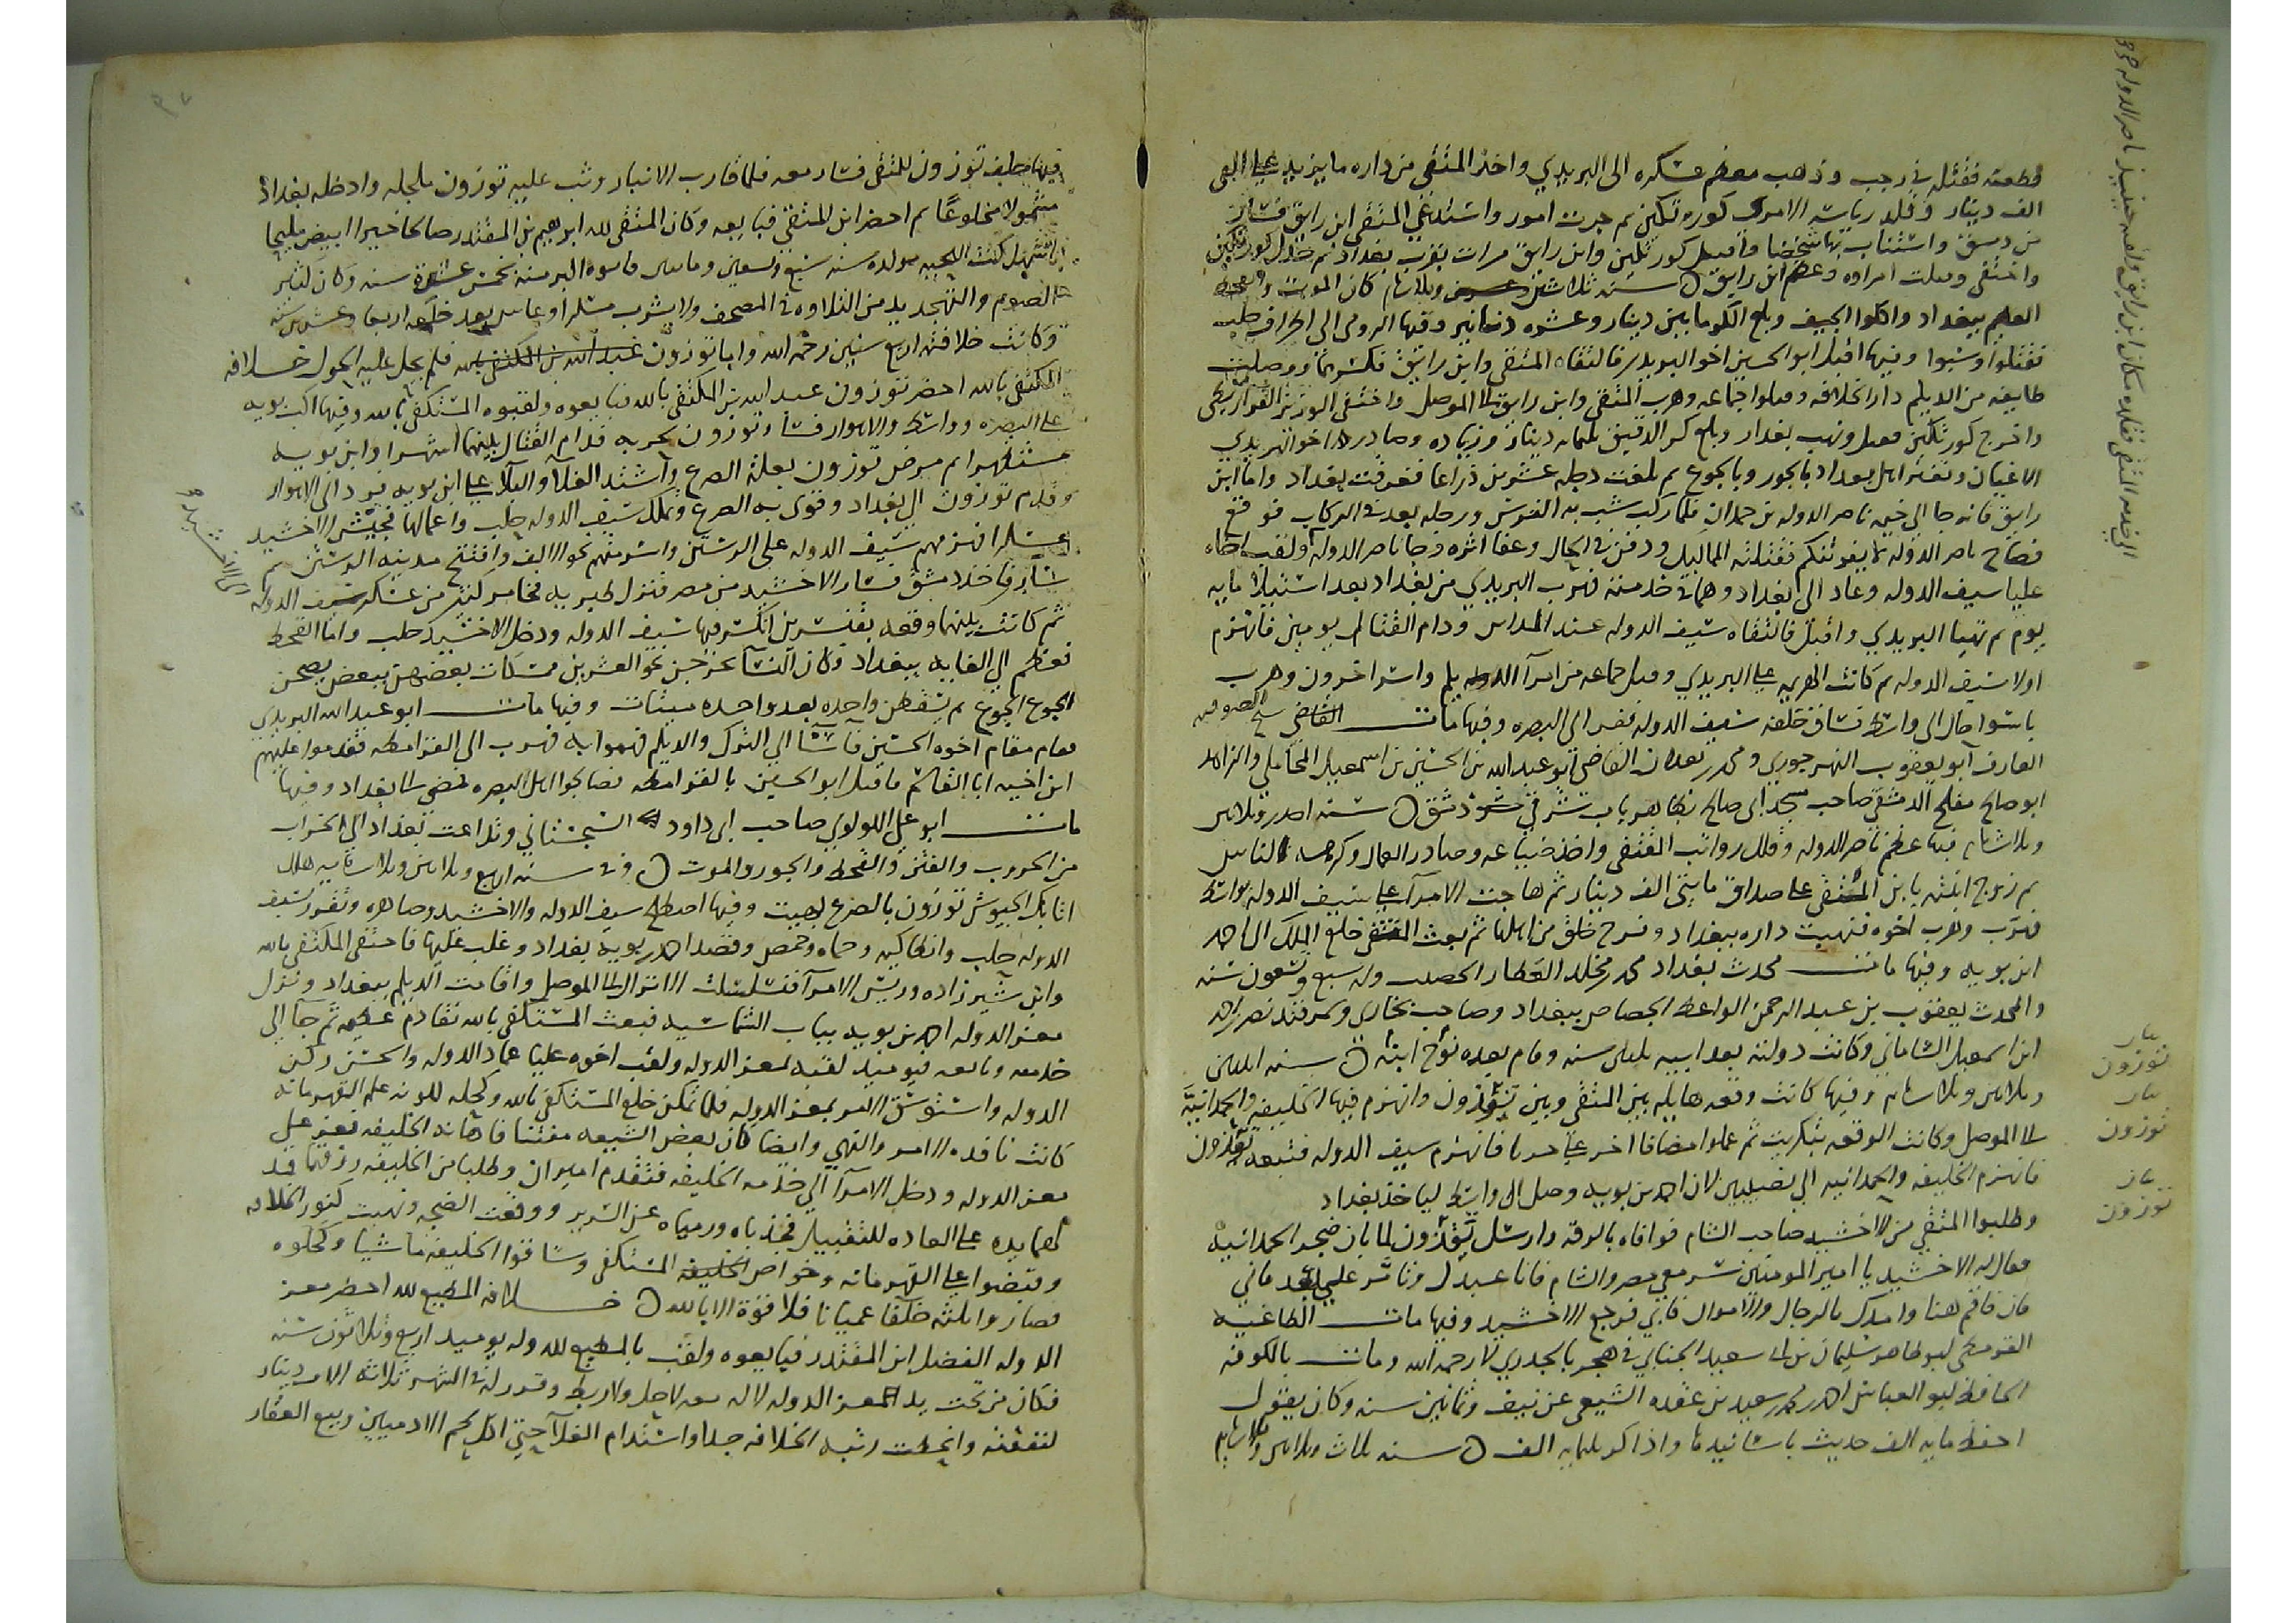 قطعنه فقتله في رجب وذهب معظم عسكره الى البريدي واخذ المتقي من داره ما يزيد على الفي
الف دينار وقلد رياسه الامرا كورتكين ثم جرت امور واستدعى المتقي ابن رايق فسار
من دمشق واستناب بها شخصا واقتتل كورتكين وابن رايق مرات بقرب بغداد ثم خذل كورتكين
واختفى وقتلت امراوه وعظم ابن رايق ه سنه ثلاثين وثلاثمايه كان الموت والقحط
العظيم ببغداد واكلوا الجيف وبلغ الكر مايتين دينار وعشره دنانير وفيها الروم الى اطراف حلب
فقتلوا وسبوا وفيها اقبل ابو الحسين اخو البريدي فالتقاه المتقي وابن رايق فكسرهما ووصلت
طايفه من الديلم دار الخلافه وقتلوا جماعه وهرب المتقي وابن رايق الى الموصل واختفى الوزير القراريطي
واخرج كورتكين فقتل ونهب بغداد وبلغ كر الدقيق ثلثمايه دينار وزياده وصادر اخو البريدي
الاعيان وتفرق اهل بغداد بالجور وبالجوع ثم بلغت دجله عشرين ذراعا فغرقت بغداد واما ابن
رايق فانه جا الى خيمه ناصر الدوله بن حمدان فلما ركب شب به الفرس ورجله بعد في الركاب فوقع
فصاح ناصر الدوله لا يفوتنكم فقتلته المماليك ودفن في الحال وعفا اثره وجا ناصر الدوله ولقب اخاه
عليا سيف الدوله وعاد الى بغداد وهما في خدمته فهرب البريدي من بغداد بعد استيلاه مايه
يوم ثم تهيا البريدي واقبل فالتقاه سيف الدوله عند المداين ودام القتال يومين فانهزم
اولا سيف الدوله ثم كانت الهزيمه على البريدي وقتل جماعه من امرا الديلم واسر اخرون وهرب
باسوا حال الى واسط فساق خلفه سيف الدوله ففر الى البصره وفيها مات القاضي شيخ الصوفيه
العارف ابو يعقوب النهرجوري ومحدث بغداد القاضي ابو عبد الله بن الحسين بن اسمعيل المحاملي والزاهد
ابو صالح مفلح الدمشقي صاحب مسجد ابى صالح بظاهر باب شرقي دمشق ه سنه احدى وثلاثين
وثلاثمايه فيها عظم ناصر الدوله وقلل رواتب المتقي واخذ ضياعه وصادر العمال وكرهه الناس
ثم زوج ابنته بابن المتقي على صداق مايتي الف دينار ثم هاجت الامرا على سيف الدوله بواسط
فهرب وهرب اخوه فنهبت داره ببغداد ونزح خلق من اهلها ثم بعث المتقي خلع الملك الى احمد
ابن بويه وفيها مات محدث بغداد محمد بن مخلد العطار الخضيب وله سبع وتسعون سنه
والمحدث يعقوب بن عبد الرحمن الواعظ الجصاص ببغداد وصاحب بخارى وسمرقند نصر بن احمد
ابن اسمعيل الساماني وكانت دولته بعد ابيه ثلثين سنه وقام بعده نوح ابنه ه سنه اثنتين
وثلاثين وثلاثمايه وفيها كانت وقعه هايله بين المتقي وبين توزون وانهزم فيها الخليفه والحمدانيه
الى الموصل وكانت الوقعه بتكريت ثم عملوا مصافا اخر على حربا فانهزم سيف الدوله فتبعه توزون
فانهزم الخليفه والحمدانيه الى نصيبين لان احمد بن بويه وصل الى واسط لياخذ بغداد
وطلبوا المتقي من الاخشيد صاحب الشام فوافاه بالرقه وارسل توزون لما بان ضجر الحمدانيه
فقال له الاخشيد يا امير المومنين سر معي مصر والشام فانا عبدك وتامر علي فابى
فان فاقم هنا وامدك بالرجال والاموال فابى فرجع الاخشيد وفيها مات الطاغيه
القرمطي ابو طاهر سليمان بن ابى سعيد الجنابي في هجر بالجدري لا رحمه الله ومات بالكوفه
الحافظ ابو العباس احمد بن محمد بن سعيد بن عقده الشيعي عن نيف وثمانين سنه وكان يقول
احفظ مايه الف حديث باسانيدها واذاكر بثلثمايه الف ه سنه ثلاث وثلاثين وثلاثمايه
الى خدمه المتقي فقلده مكان ابن رايق ولقبه حينيذ ناصر الدوله
توزون
توزون
توزون
فيها حلف توزون للمتقي فسار معه فلما قارب الانبار وثب عليه توزون بلجله وادخله بغداد
مسمولا مخلوعا ثم احضر ابن المتقي فبايعه وكان المتقي لله ابراهيم بن المقتدر صالحا خيرا ابيض مليحا
اشهل كث اللحيه مولده سنه سبع وتسعين ومايتين واخوه اكبر منه بخمس عشرة سنه وكان كثير
الصوم والتهجد يديم التلاوه في المصحف ولا يشرب مسكرا وعاش بعد خلعه اربعا وعشرين سنه
وكانت خلافته اربع سنين رحمه الله واما توزون فلم يحل عليه الحول خلافه
المكتفي بالله احضر توزون عبد الله بن المكتفي بالله فبايعوه ولقبوه المستكفي بالله وفيها اكب بويه
على البصره وواسط والاهواز فسار توزون لحربه فدام القتال بينهما اشهرا وابن بويه
مستظهرا ثم مرض توزون بعلة الصرع واشتد الغلا والبلا على ابن بويه فرد الى الاهواز
وقدم توزون الى بغداد وقوى به الصرع وتملك سيف الدوله حلب واعمالها فجيش الاخشيد
عسكرا فهزمهم سيف الدوله على الرستن واسر منهم نحو الالف وافتتح مدينه الرستن ثم
سار فاخذ دمشق فسار الاخشيد من مصر فنزل طبريه فخامر كثير من عسكر سيف الدوله
ثم كانت بينهما وقعه بقنسرين انكسر فيها سيف الدوله ودخل الاخشيد حلب واما القحط
فعظم الى الغايه ببغداد وكان النسا يخرجن نحو العشرين متمسكات بعضهن ببعض يصحن
الجوع الجوع ثم يسقطن واحده بعد واحده ميتات وفيها مات ابو عبد الله البريدي
فقام مقام اخوه الحسين فاسا الى الترك والديلم فهموا به فهرب الى القرامطه فقدموا عليهم
ابن اخيه ابا القاسم فاقبل ابو الحسين بالقرامطه فصالحوا اهل البصره فمضى الى بغداد وفيها
مات ابو علي اللولوي صاحب ابى داود السجستاني وتداعت بغداد الى الخراب
من الحروب والفتن والقحط والجور والموت ه وفي سنه اربع وثلاثين وثلاثمايه هلك
اتابك الجيوش توزون بالصرع بهيت وفيها اصطلح سيف الدوله والاخشيد وصاهره وتقرر لسيف
الدوله حلب وانطاكيه وحماه وحمص وقصد احمد بن بويه بغداد وغلب عليها فاختفى المكتفي بالله
وابن شيرزاده وريس الامرا فتسللت الاتراك الى الموصل واقامت الديلم ببغداد ونزل
معز الدوله احمد بن بويه بباب الشماسيه فبعث المستكفي بالله تقادم عظيمه ثم جا الى
خدمته وبايعه فيوميذ لقبه بمعز الدوله ولقب اخوه عليا عماد الدوله والحسن ركن
الدوله واستوسق الامر بمعز الدوله فلما تمكن خلع المستكفي بالله وكحله لكونه علم القهرمانه
كانت نافذه الامر والنهي وايضا كان بعض الشيعه مفتنا فاهانه الخليفه فعز على
معز الدوله ودخل الامرا الى خدمه الخليفه فتقدم اميران وطلبا من الخليفه رزقهما فمد
لهما يده على العاده للتقبيل فجذباه ورمياه عن السرير ووقعت الضجه ونهبت كنوز الخلافه
وقبضوا على القهرمانه وخواص المستكفي وساقوا الخليفه ماشيا وكحلوه
فصاروا ثلثه خلفا عميانا فلا قوة الا بالله ه خلافه المطيع لله احضر معز
الدوله الفضل ابن المقتدر فبايعوه ولقب بالمطيع لله وله يوميذ اربع وثلاثون سنه
فكان من تحت يد المعز الدوله لا له معه لا حل ولا ربط وقرر له في الشهر ثلاثه الاف دينار
لنفقته وانحطت رتبه الخلافه جدا واستدام الغلا حتى اكل لحم الادميين وبيع العقار